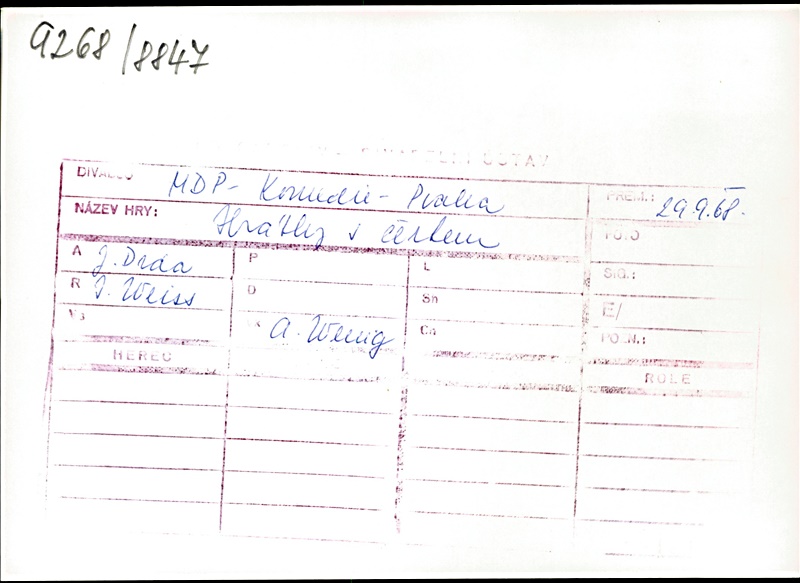 9268/8847
ÚSTAV
DIVADLO MDP - Komedie - Praha PREM.: 29.9.68.
NÁZEV HRY: Hrátky s čertem FOTO
A J. Drda P L SIG.:
R J. Weiss D Sn E/
Vs A. Wenig Ch POZN.:
HEREC ROLE